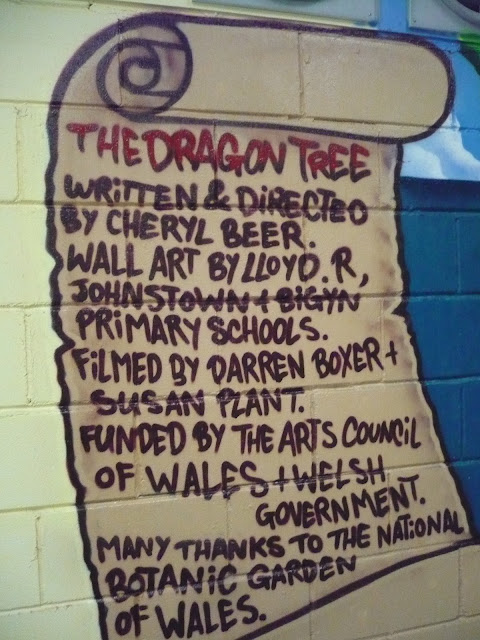 THE DRAGON TREE
WRiTTEN & DiRECTED
BY CHERYL BEER.
WALL ART BY LLOYD. R,
JOHNSTOWN + BiGYN
PRiMARY SCHOOLS.
FiLMED BY DARREN BOXER +
SUSAN PLANT.
FUNDED BY THE ARTS COUNCiL
OF WALES + WELSH
GOVERNMENT.
MANY THANKS TO THE NATiONAL
BOTANiC GARDEN
OF WALES.